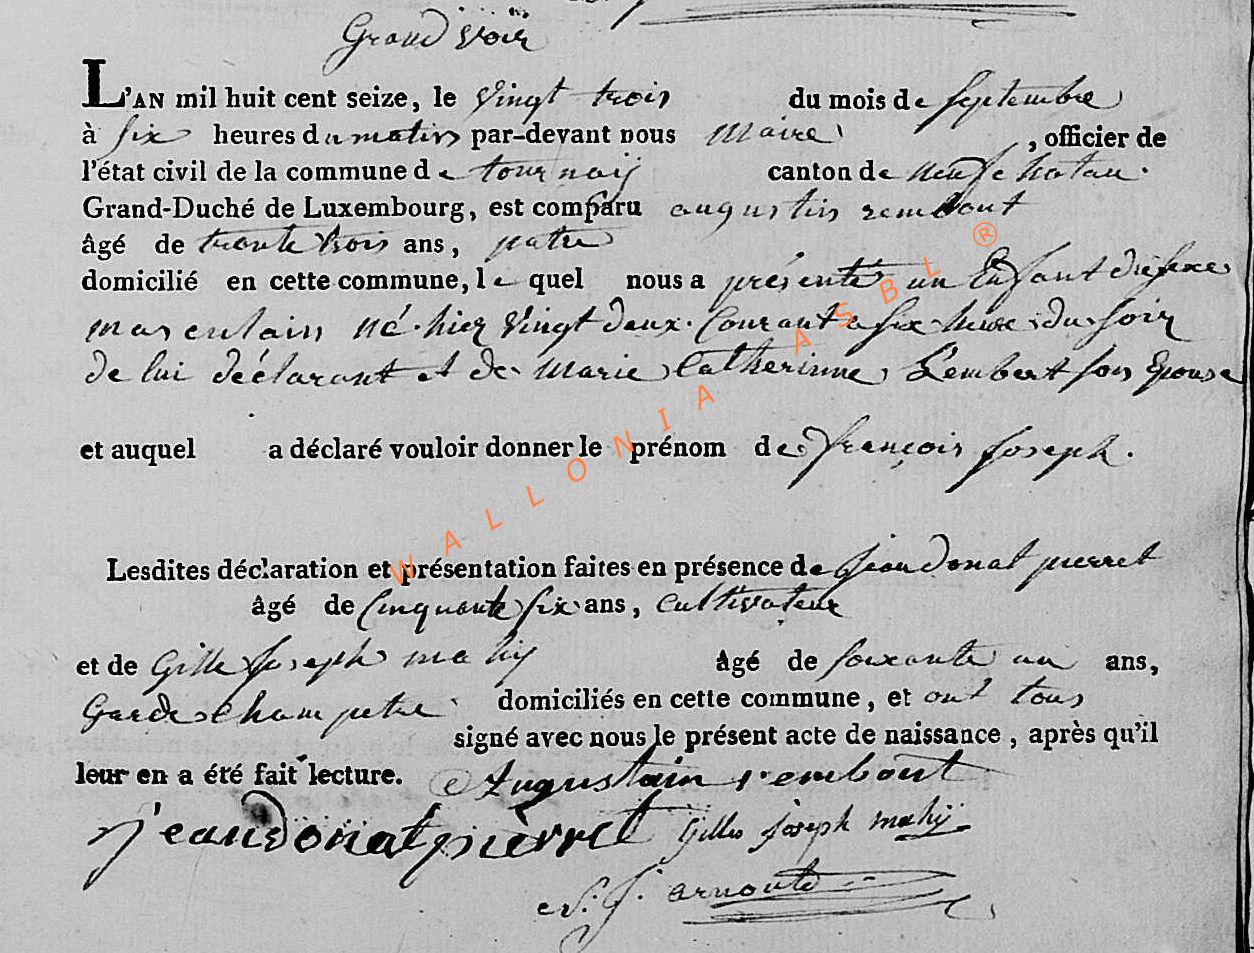 Grand voir
L'AN mil huit cent seize, le vingt trois du mois de septembre
à six heures du matin par-devant nous maire , officier de
l'état civil de la commune de tournay canton de neufchatau.
Grand-Duché de Luxembourg, est comparu augustin rembout
âgé de trante trois ans, patre
domicilié en cette commune, le quel nous a présenté un Enfant du sexe
masculain né hier vingt deux Courant a six heure du soir
de lui déclarant et de marie Catherinne Lembert son Epouse
et auquel a déclaré vouloir donner le prénom de françois Joseph.
Lesdites déclaration et présentation faites en présence de jean donat pierret
âgé de cinquante six ans, cultivateur
et de Gille Joseph mahy âgé de soixante un ans,
Garde champetre domiciliés en cette commune, et ont tous
signé avec nous le présent acte de naissance, après qu'il
leur en a été fait lecture. Augustain rembout
jean donat pierret Gilles joseph mahy
arnould
WALLONIA ASBL ®